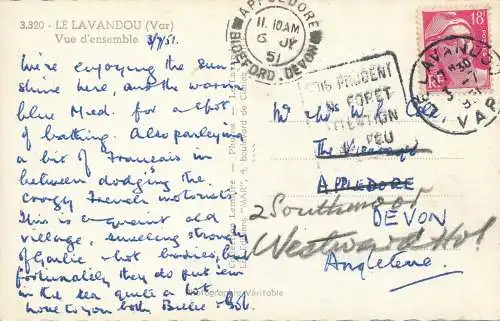 3.320 - LE LAVANDOU (Var)
Vue d'ensemble 3/7/51.
We're enjoying the sun
shine here, and the warm
blue Med. for a spot
of bathing. Also parleying
a bit of Francais in
between dodging the
crazy French motorists.
This is a quaint old
village, smelling strong
of Garlic & hot bodies, but
fortunately they do put 'em
in the sea quite a lot
more to you both Billie & Bob.
APPLEDORE
11.10AM
6 JY
51
BIDEFORD, DEVON
SOIS PRUDENT
EN FORET
ATTENTION
AU FEU
18F
LE LAVANDOU
VAR
Mr and Mrs Cole
The Vicarage
APPLEDORE
2 Southmoor
DEVON
Westward Ho!
Angleterre
Photographie Véritable